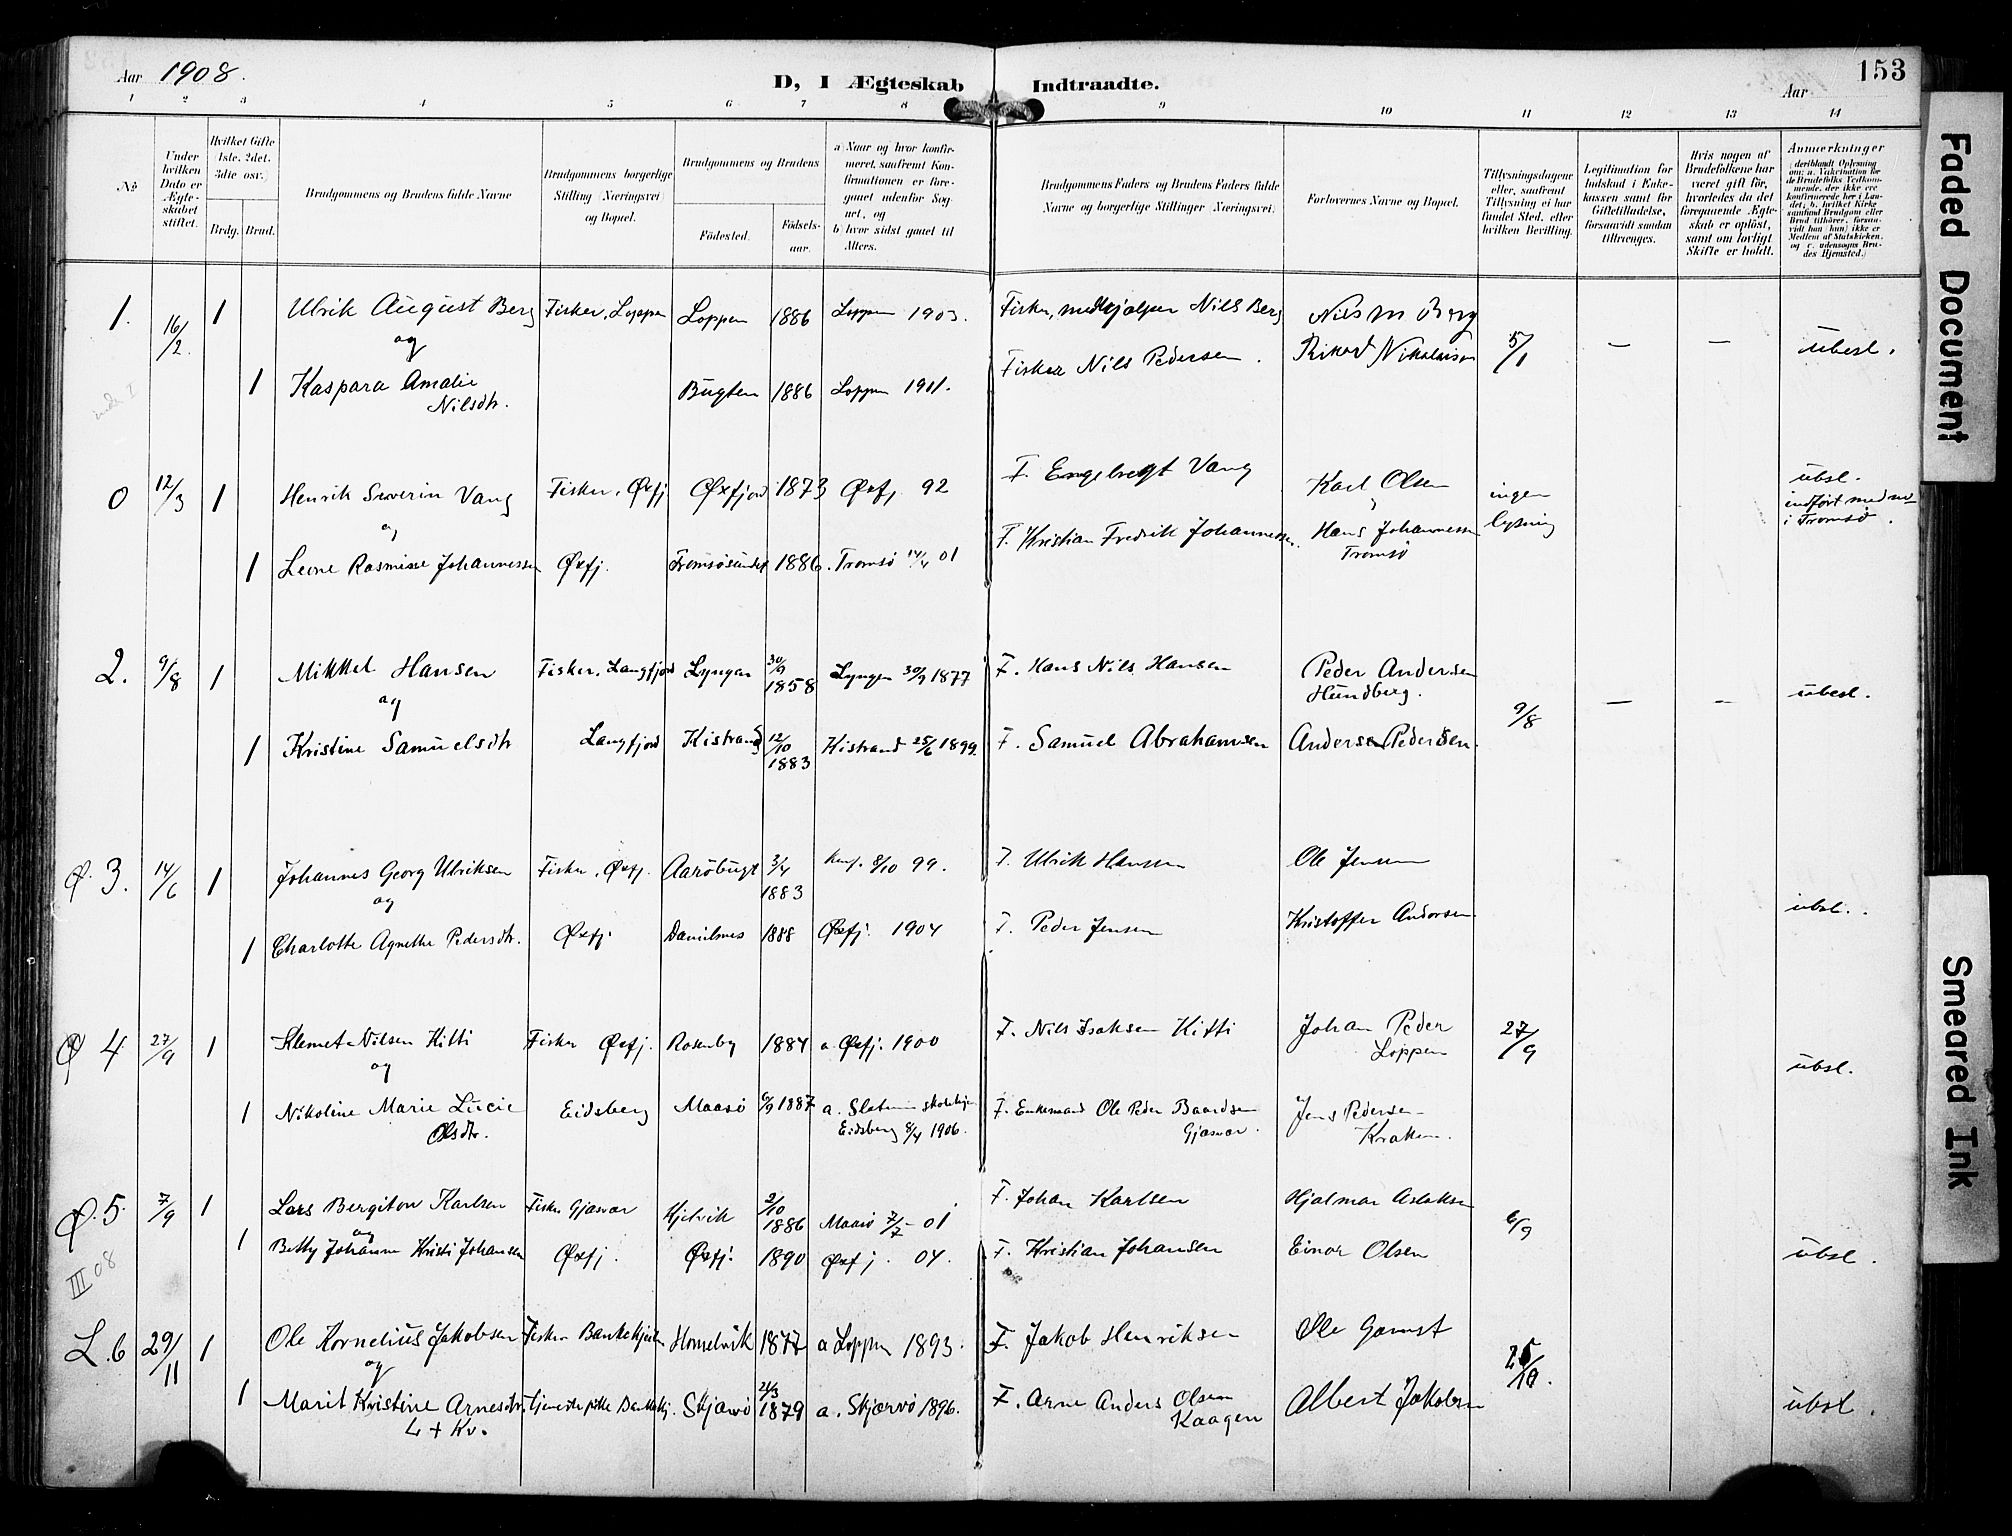 Aar 1908.
D, I Ægteskab Indtraadte.
153
Aar
1 2 3 4 5 6 7 8 9 10 11 12 13 14
No
Under hvilken Dato er Ægteskabet stiftet.
Hvilket Gifte (1ste, 2det, 3die osv.)
Brdg. Brud.
Brudgommens og Brudens fulde Navne
Brudgommens borgerlige Stilling (Næringsvei) og Bopæl.
Brudgommens og Brudens
Fødested.
Fødsels-aar.
a) Naar og hvor konfirmeret, saafremt Konfirmationen er foregaaet udenfor Sognet, og
b) hvor sidst gaaet til Alters.
Brudgommens Faders og Brudens Faders fulde Navne og borgerlige Stillinger (Næringsvei)
Forlovernes Navne og Bopæl.
Tillysningsdagene eller, saafremt Tillysning ei har fundet Sted, efter hvilken Bevilling.
Legitimation for Indskud i Enkekassen samt for Giftetilladelse, forsaavidt saadan tiltrænges.
Hvis nogen af Brudefolkene har været gift før, hvorledes da det foregaaende Ægteskab er opløst, samt om lovligt Skifte er holdt.
Anmerkninger
(deriblandt Oplysning om: a. Vakcination for de Brudefolks Vedkommende, der ikke ere konfirmerede her i Landet, b. hvilket Kirkesamfund Brudgom eller Brud tilhører, forsaavidt han (hun) ikke er Medlem af Statskirken, og c. udensogns Brudes Hjemsted.)
1. 16/2 1 Ulrik August Berg Fisker, Loppen Loppen 1886 Loppen 1903. Fisker, medhjælper Nils Berg Nils M Berg 5/1 — — ubesl.
og
1 Kaspara Amalie Nilsdtr. Bugten 1886 Loppen 1901. Fisker Nils Pedersen. Rikard Nikolaisen
0 12/3 1 Henrik Severin Vang Fisker, Øxfj. Øxfjord 1873 Øxfj. 92 F. Engelbregt Vang Karl Olsen ingen lysning ubsl. indført med no i Tromsø.
og
1 Leone Rasmine Johannessen Øxfj. Tromsøsundet 1886. Tromsø 14/4 01 F. Kristian Fredrik Johannessen. Hans Johannessen Tromsø
2. 9/8 1 Mikkel Hansen Fisker, Langfjord Lyngen 30/9 1858 Lyngen 30/9 1877 F. Hans Nils Hansen Peder Andersen Hundberg. 9/8 — — ubesl.
og
1 Kristine Samuelsdtr Langfjord Kistrand 12/10 1883 Kistrand 25/6 1899. F. Samuel Abrahamsen Andersen Pedersen.
Ø. 3. 14/6 1 Johannes Georg Ulriksen Fisker, Øxfj. Aarøbugt 3/4 1883 Konf. 8/10 99. F. Ulrik Hansen Ole Jensen ubsl.
og
1 Charlotte Agnethe Pedersdtr. Øxfj. Danielnes 1888 Øxfj. 1904 F. Peder Jensen Kristoffer Andersen.
Ø 4 27/9 1 Klemet Nilsen Kitti Fisker Øxfj. Rosenby 1884 a. Øxfj. 1900 F. Nils Isaksen Kitti Johan Peder Loppen 27/9 ubsl.
og
1 Nikoline Marie Lucie Olsdtr. Eidsberg Maasø 6/9 1887 a. Statens skolehjem Eidsberg 8/4 1906. F. Enkemand Ole Peder Baardsen Gjæsvær. Jens Pedersen Kraken.
Ø. 5. 7/9 1 Lars Bergiton Karlsen Fisker Gjæsvær Kjelvik 2/10 1886 Maasø 7/7 - 01 F. Johan Karlsen Hjalmar Aslaksen 6/9
og
1 Betty Johanne Kristi Johansen Øxfj. Øxfj. 1890 Øxfj. 04. F. Kristian Johansen Einar Olsen ubsl.
III 08
L. 6 29/11 1 Ole Kornelius Jakobsen Fisker Bankekjeilen Homelvik 1877 a Loppen 1893. F. Jakob Henriksen Ole Gamst 25/10. ubsl.
og
1 Marit Kristine Arnesdtr. Tjenestepike Bankekj. Skjærvø 21/3 1879 a. Skjærvø 1896. F. Arne Anders Olsen Kaagen Albert Jakobsen
L + Kv.
Faded Document
Smeared Ink